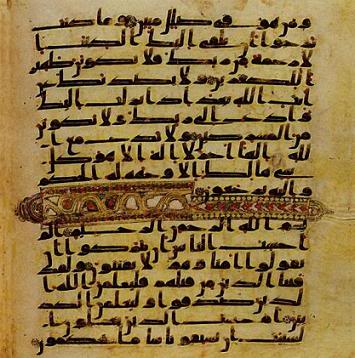 ومن هو في ضلل مبين وما كنت
ترجوا ان يلقى اليك الكتب ا
لا رحمة من ربك فلا تكونن ظهير
ا للكفرين ولا يصدنك عن
ايت الله بعد اذ انزلت اليك
وادع الى ربك ولا تكونن
من المشركين ولا تدع مع ا
لله الها اخر لا اله الا هو كل
شي هالك الا وجهه له الحكم
واليه ترجعون
بسم الله الرحمن الرحيم الم
احسب الناس ان يتركوا ا
ن يقولوا امنا وهم لا يفتنون ولقد
فتنا الذين من قبلهم فليعلمن الله ا
لذين صدقوا وليعلمن الكذ
بين ام حسب الذين يعملون ا
لسيات ان يسبقونا سا ما يحكمون